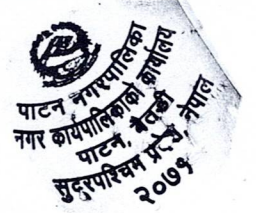 पाटन नगरपालिका
नगर कार्यपालिकाको कार्यालय
पाटन, बैतडी
सुदूरपश्चिम प्रदेश, नेपाल
२०७९